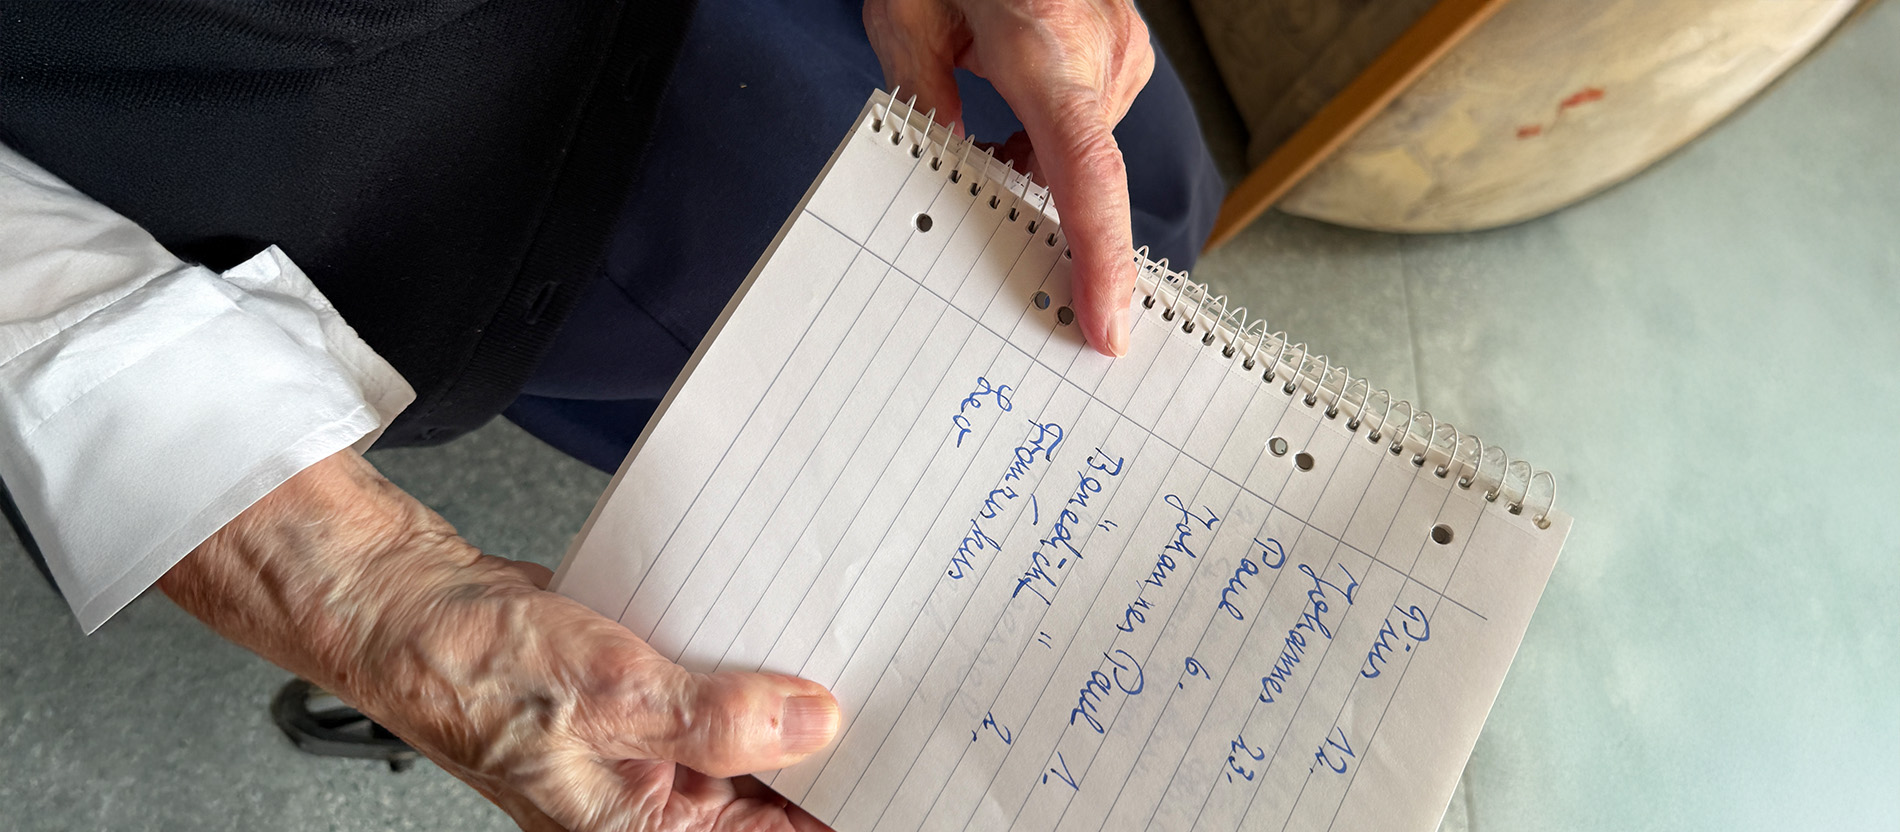 Pius 12.
Johannes 23.
Paul 6.
Johannes Paul 1.
" " 2.
Benedikt
Franziskus
Leo